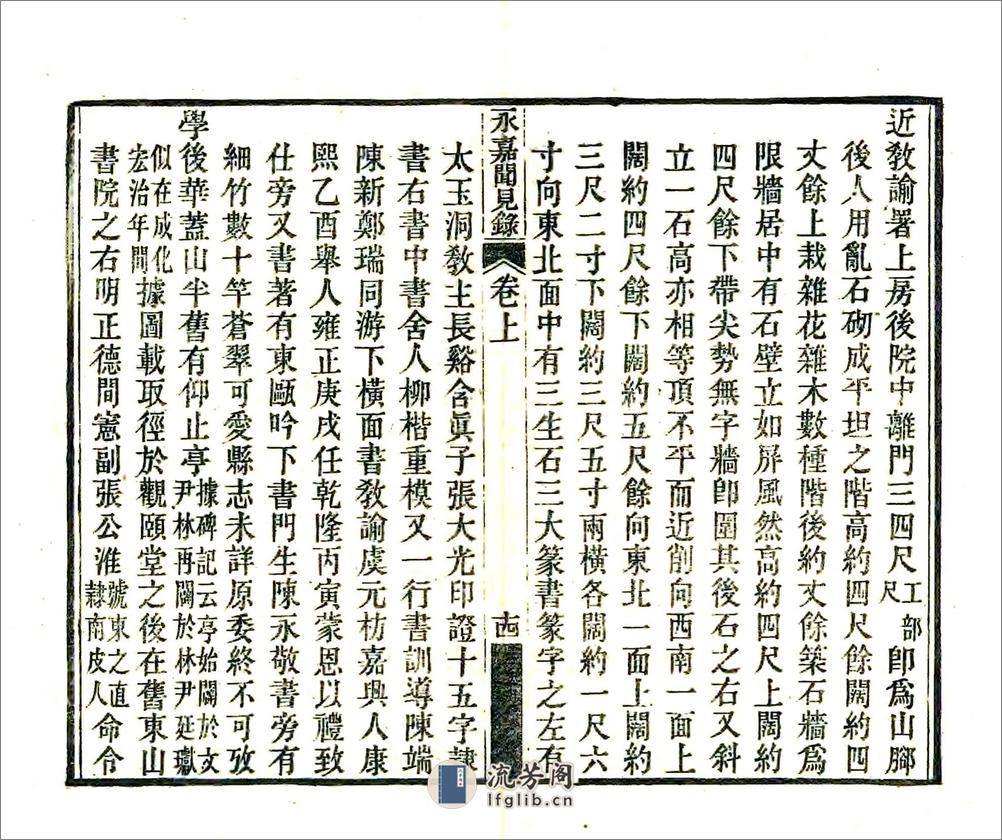 近敎諭署上房後院中離門三四尺工部尺卽爲山腳
後人用亂石砌成平坦之階高約四尺餘闊約四
丈餘上栽雜花雜木數種階後約丈餘築石牆爲
限牆居中有石壁立如屏風然高約四尺上闊約
四尺餘下帶尖勢無字牆卽圍其後石之右又斜
立一石高亦相等頂不平而近削向西南一面上
闊約四尺餘下闊約五尺餘向東北一面上闊約
三尺二寸下闊約三尺五寸兩橫各闊約一尺六
寸向東北面中有三生石三大篆書篆字之左有
永嘉聞見錄 卷上 十四
太玉洞敎主長谿含眞子張大光印證十五字隸
書右書中書舍人柳楷重模又一行書訓導陳端
陳新鄭瑞同游下橫面書敎諭虞元枋嘉興人康
熙乙酉舉人雍正庚戌任乾隆丙寅蒙恩以禮致
仕旁又書著有東甌吟下書門生陳永敬書旁有
細竹數十竿蒼翠可愛縣志未詳原委終不可攷
學後華蓋山半舊有仰止亭據碑記云亭始闢於文尹林再闢於林尹廷瓛
似在成化宏治年間據圖載取徑於觀頤堂之後在舊東山
書院之右明正德間憲副張公淮號東之直隸南皮人命令
流芳阁
lfglib.cn